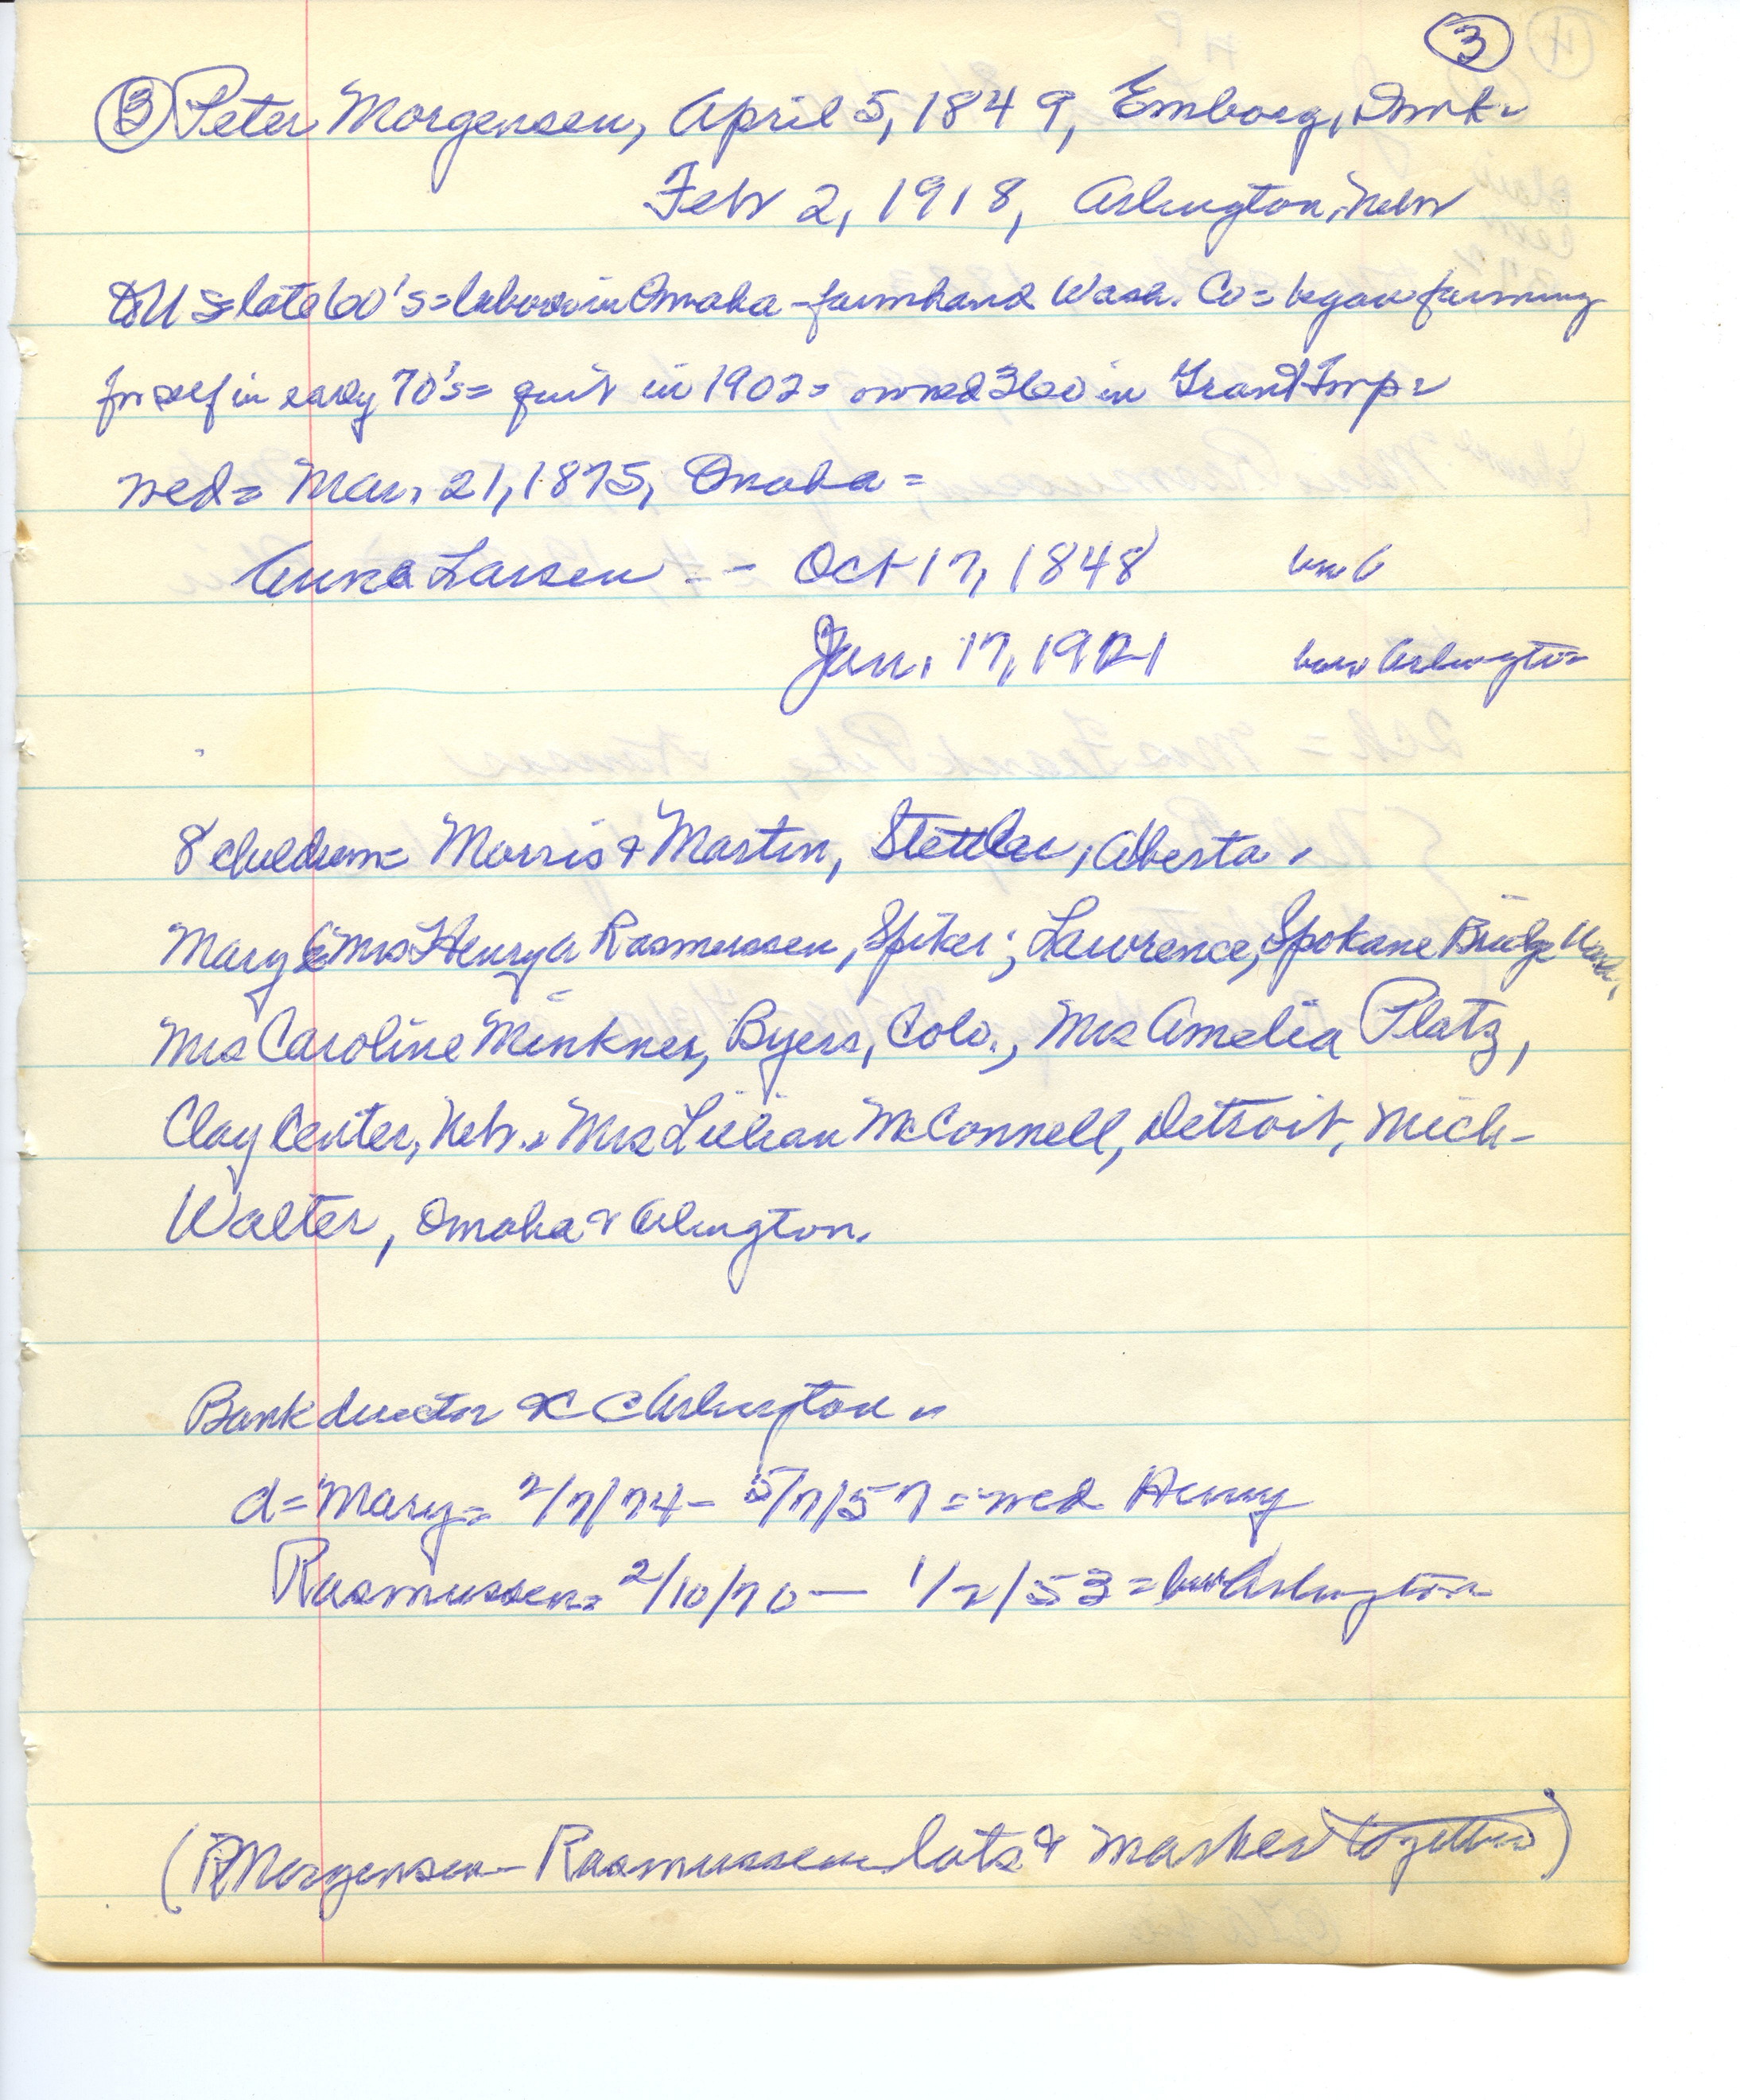 3
③ Peter Morgensen, April 5, 1849, Emborg, Dmk.
Feb 2, 1918, Arlington, Nebr
late 60's = labor in Omaha - farmhand Wash. Co = began farming
for self in early 70's = quit in 1902 = owned 360 in Grant Twp.
wed = Mar. 21, 1875, Omaha =
Anna Larsen -- Oct 17, 1848
Jan. 17, 1921 bur Arlington
8 children = Morris & Martin, Stettler, Alberta.
Mary Mrs Henry Rasmussen, Spiker; Lawrence, Spokane Bridge Wash,
Mrs Caroline Minkner, Byers, Colo., Mrs Amelia Platz,
Clay Center, Neb. Mrs Lillian McConnell, Detroit, Mich -
Walter, Omaha & Arlington.
Bank director Arlington
d = Mary = 2/7/74 - 5/7/57 = wed Henry
Rasmussen = 2/10/70 — 1/2/53 = bur Arlington
(P Morgensen - Rasmussen lots & marker together)